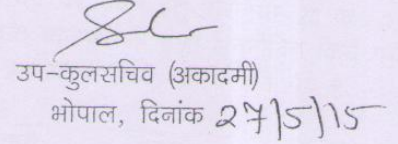 उप-कुलसचिव (अकादमी)
भोपाल, दिनांक 27/5/15